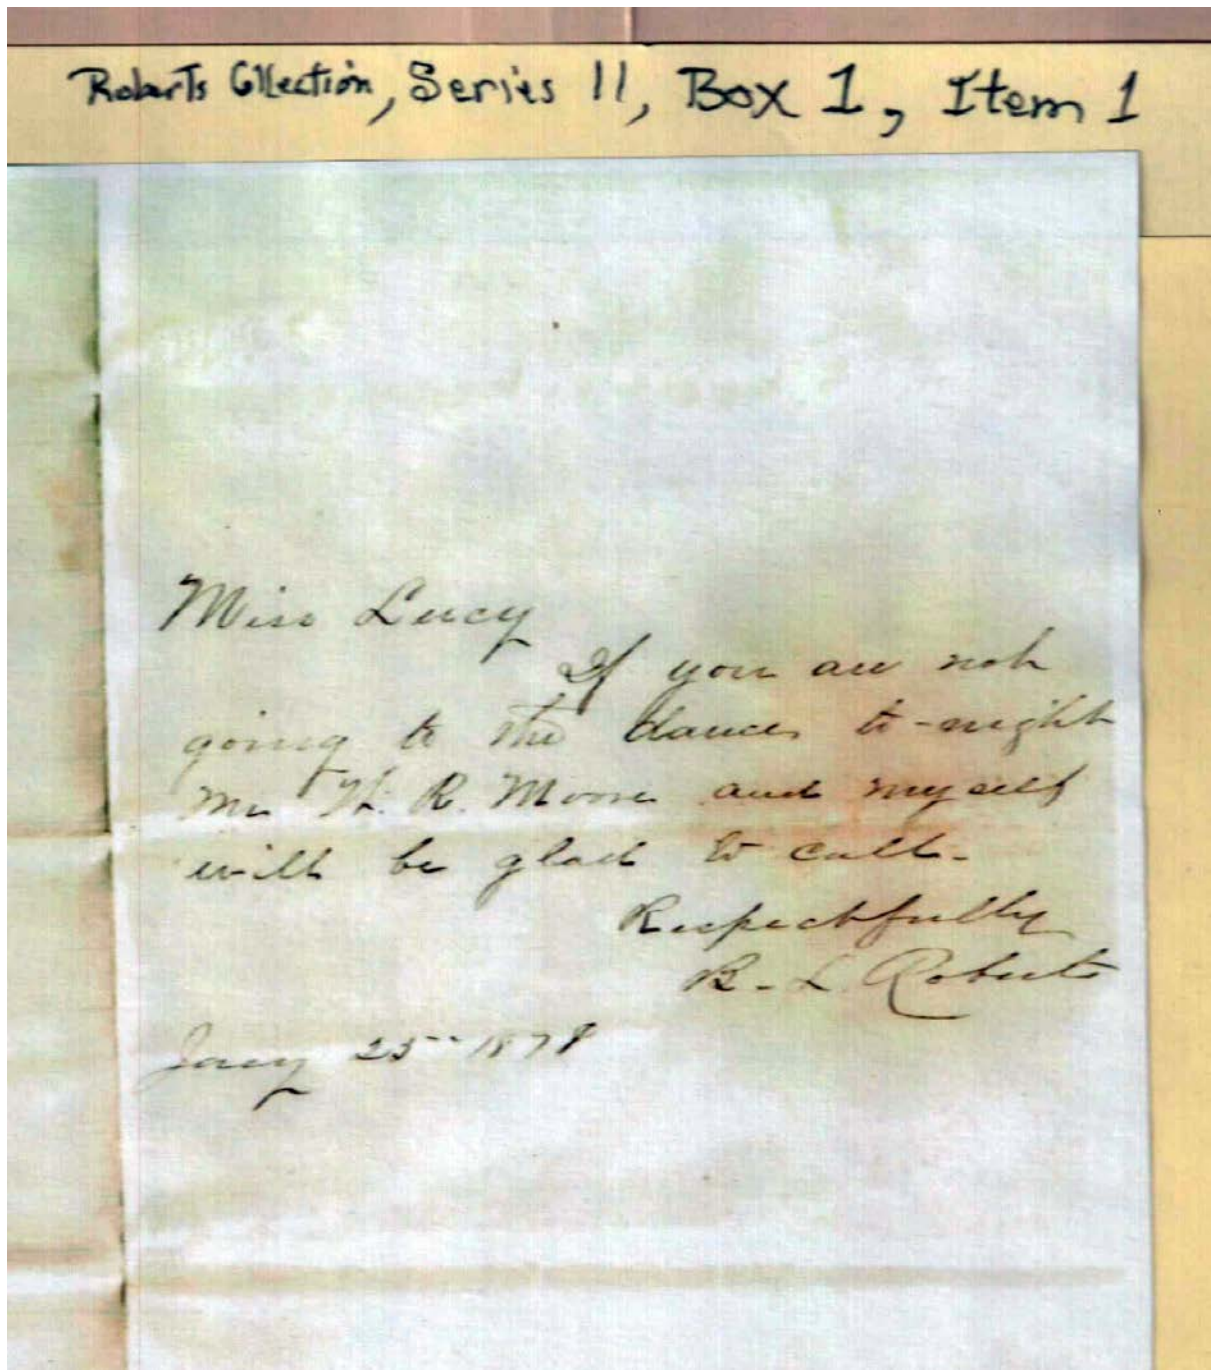 Roberts Collection, Series 11, Box 1, Item 1
Miss Lucy
If you are not
going to the dance, to-night
Mr R. Moore and myself
will be glad to call.
Respectfully
B. L. Roberts
Jany 25 1878